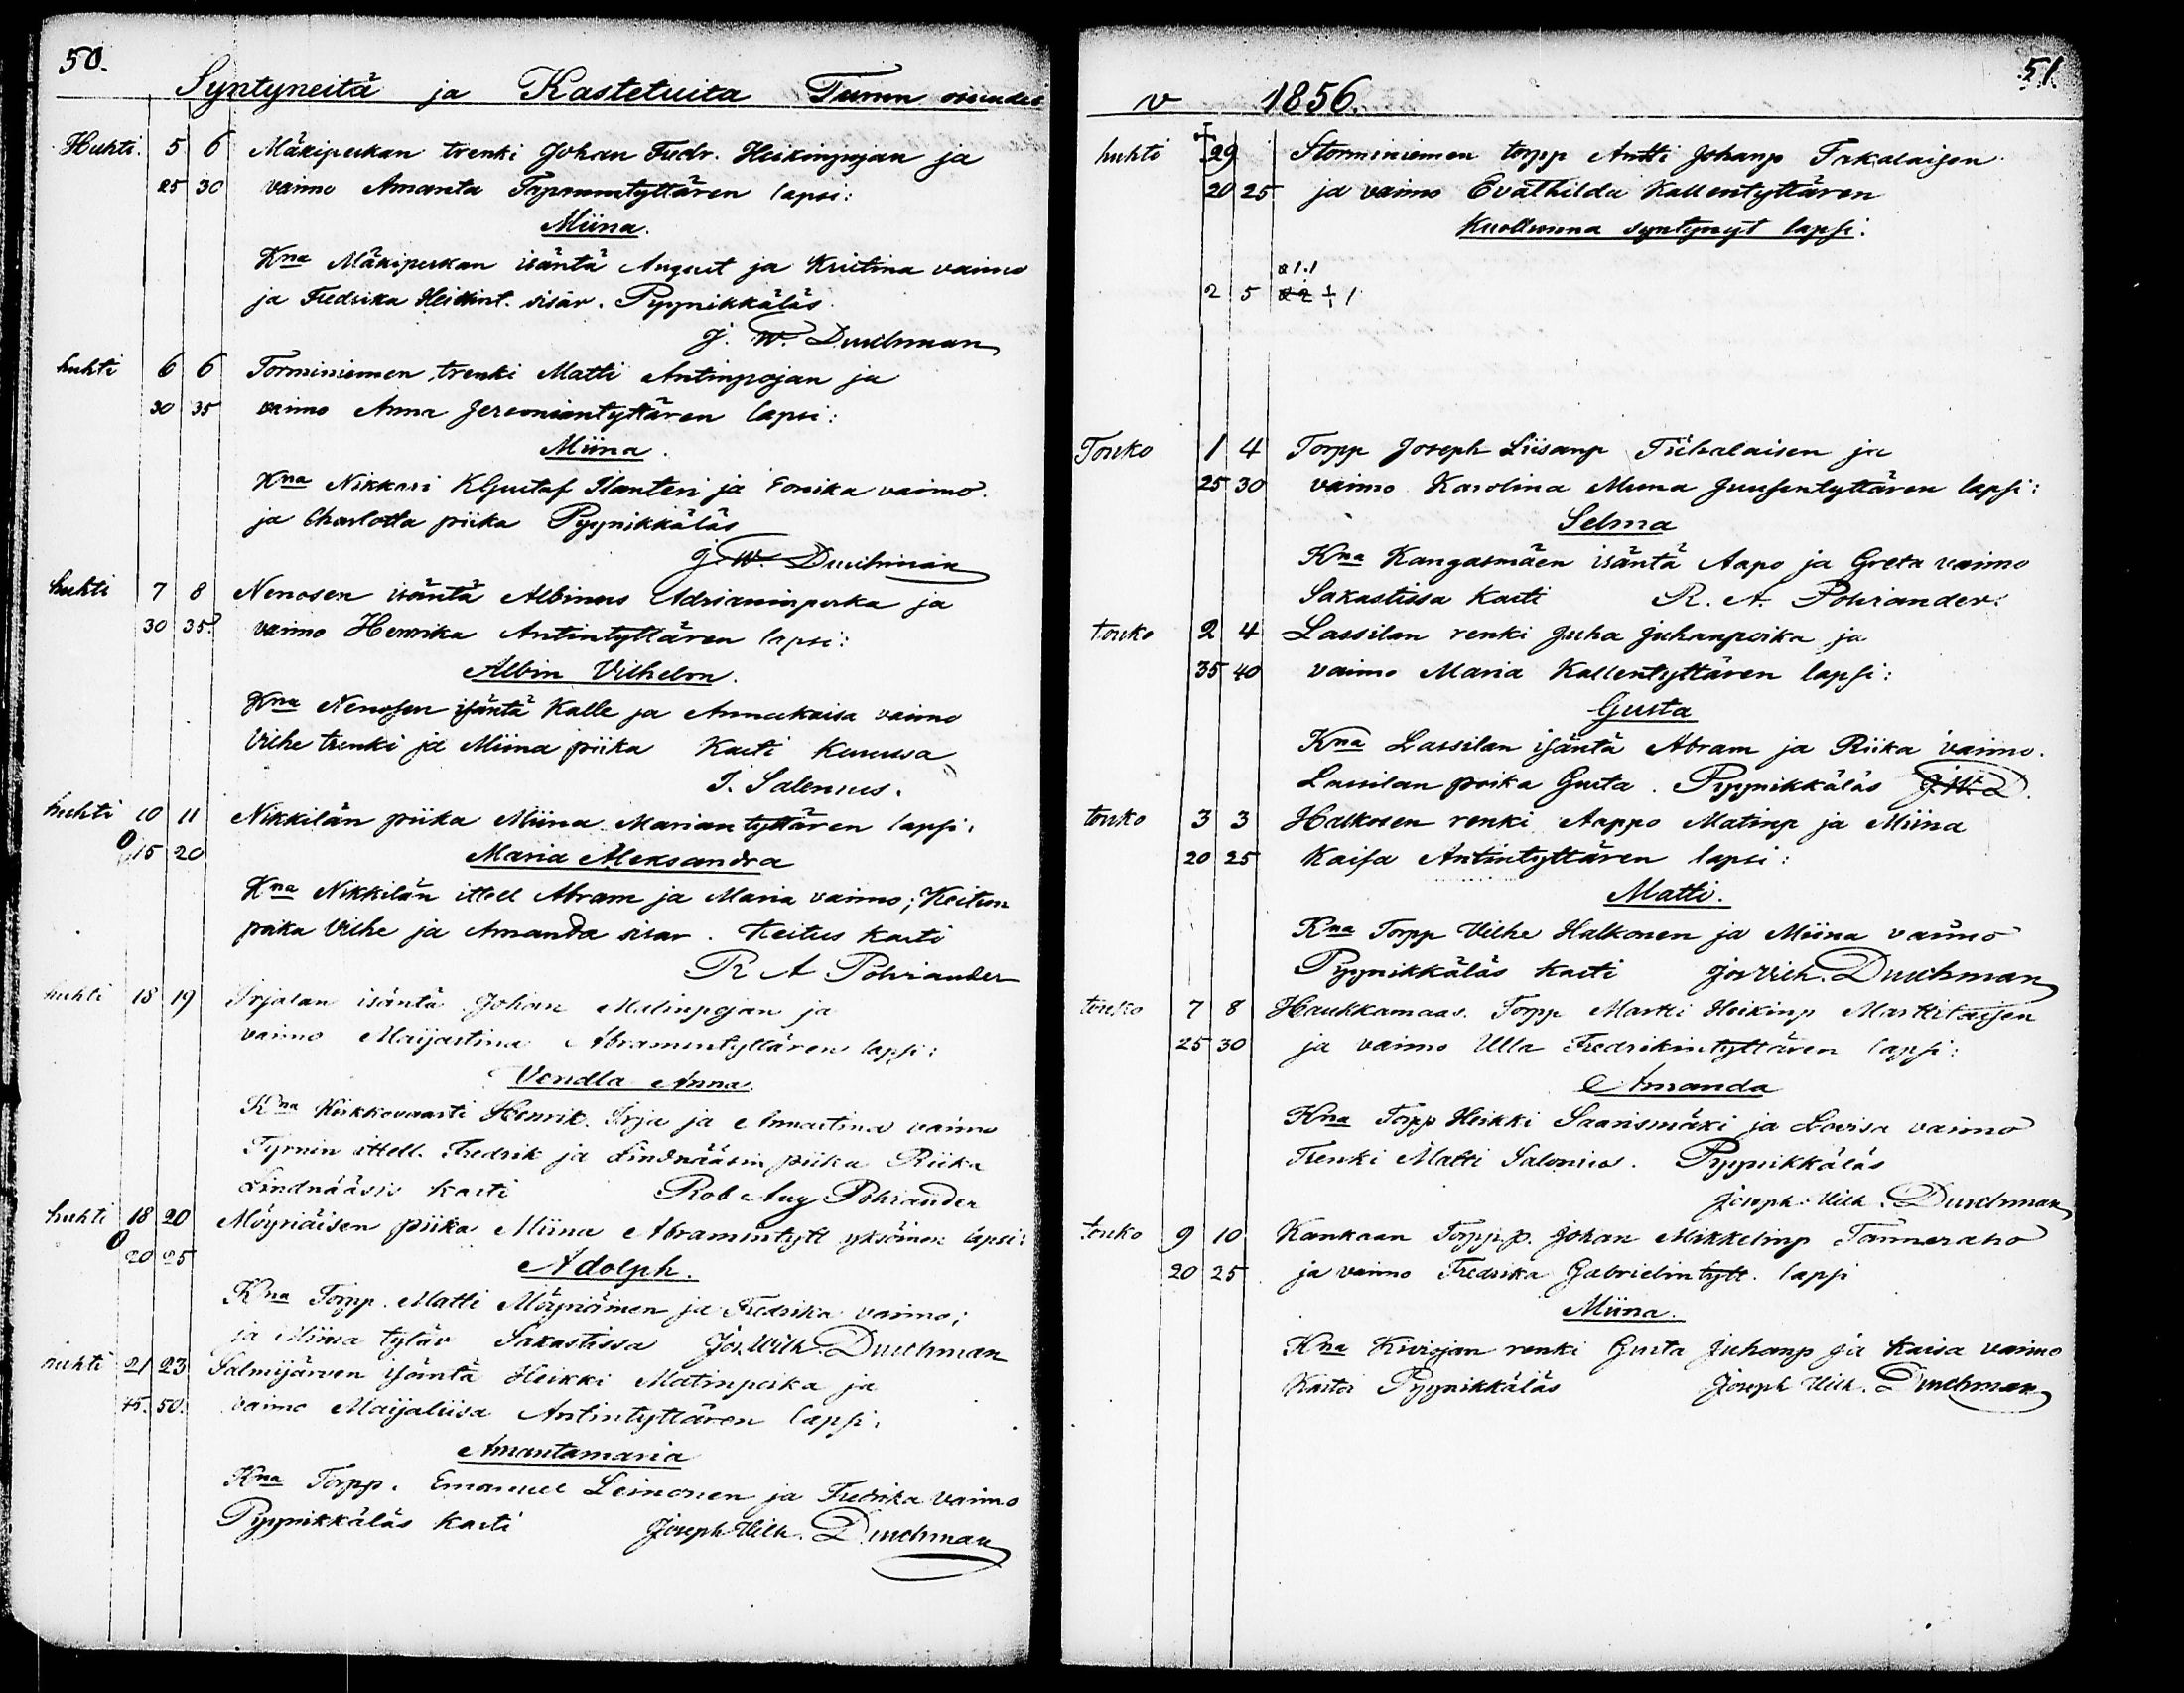 50.
Syntyneitä ja Kastetuita
Huhti. 5 6 Mäkipeskan trenki Johan Fredr. Heikinpojan ja
25 30 vaimo Amanta Tapanintyttären lapsi:
Miina.
Kna Mäkipeskan isäntä August ja Kristina vaimo
ja Fredrika Heikint. sisar. Pyynikkäläs.
J. W. Durchman
huhti 6 6 Torminiemen trenki Matti Antinpojan ja
30 35 vaimo Anna Jeremiantyttären lapsi:
Miina.
Kna Nikkari KGustaf Ilanteri ja vaimo.
ja Charlotta piika Pyynikkäläs
J. W. Durchman
huhti 7 8 Nenosen isäntä Albinus Adrianinpoika ja
30 35. vaimo Henrika Antintyttären lapsi:
Albin Vilhelm.
Kna Nenosen isäntä Kalle ja Annakaisa vaimo
Vilhe trenki ja Miina piika Kasti
J. Salenius.
huhti 10 11 Nikkilän piika Miina Mariantyttären lapsi:
0 15 20 Maria Aleksandra
Kna Nikkilän ittell Abram ja Maria vaimo; Keitun
poika Vilhe ja Amanda sisar. Keitus kasti
R A Polviander
huhti 18 19 Srjalan isäntä Johan Matinpojan ja
vaimo Maijastina Abramintyttären lapsi:
Vendla Anna.
Kna Kirkkovaarti Henrik. Srja ja Annastina vaimo
Tyrnin ittell. Fredrik ja Lindnääsin piika Riika
Lindnääsis kasti Rob Aug Polviander
huhti 18 20 Möyriäisen piika Miina Abramintytt yksöinen lapsi:
0 20 25 Adolph.
Kna Torpp. Matti Möyriäinen ja Fredrika vaimo;
ja Miina tytär Sakastissa Jos. Wilh. Durchman
huhti 21 23 Salmijärven isäntä Heikki Matinpoika ja
45. 50. vaimo Maijaliisa Antintyttären lapsi:
Amantamaria
Kna Torpp. Emanuel Leinonen ja Fredrika vaimo
Pyynikkäläs kasti Joseph Wilh. Durchman
51.
v 1856.
huhti 29 Storminiemen torpp Antti Johanp Takalaisen
20 25 ja vaimo Evathilda Kallentyttären
Kuolluinna syntynyt lapsi.
2 5
Touko 1 4 Torpp Joseph Liisanp Tiihalaisen ja
25 30 vaimo Karolina Miina Juusentyttären lapsi:
Selma
Kna Kangasmäen isäntä Aapo ja Greta vaimo
Sakastissa kasti R. A. Polviander.
touko 2 4 Lassilan renki Juha Juhanpoika ja
35 40 vaimo Maria Kallentyttären lapsi:
Gusta
Kna Lassilan isäntä Abram ja Riika vaimo.
Lassilan poika Gusta. Pyynikkäläs J. W. D.
touko 3 3 Halkosen renki Aappo Matinp ja Miina
20 25 Kaisa Antintyttären lapsi:
Matti.
Kna Torpp Vilhe Halkonen ja Miina vaimo
Pyynikkäläs kasti Jos Wilh. Durchman
touko 7 8 Haukkamaas. Torpp Martti Heikinp Marttilaisen
25 30 ja vaimo Ulla Fredrikintyttären lapsi:
Amanda
Kna Torpp Heikki Saarismäki ja Lovisa vaimo
Trenki Matti Salonius. Pyynikkäläs
Joseph Wilh. Durchman
touko 9 10 Kankaan Torpp.p. Johan Mikkelinp Tannerano
20 25 ja vaimo Fredrika Gabrielintytt. lapsi
Miina.
Kna Kiviojan renki Gusta Juhanp ja Kaisa vaimo
Kastoi Pyynikkäläs Joseph Wilh. Durchman